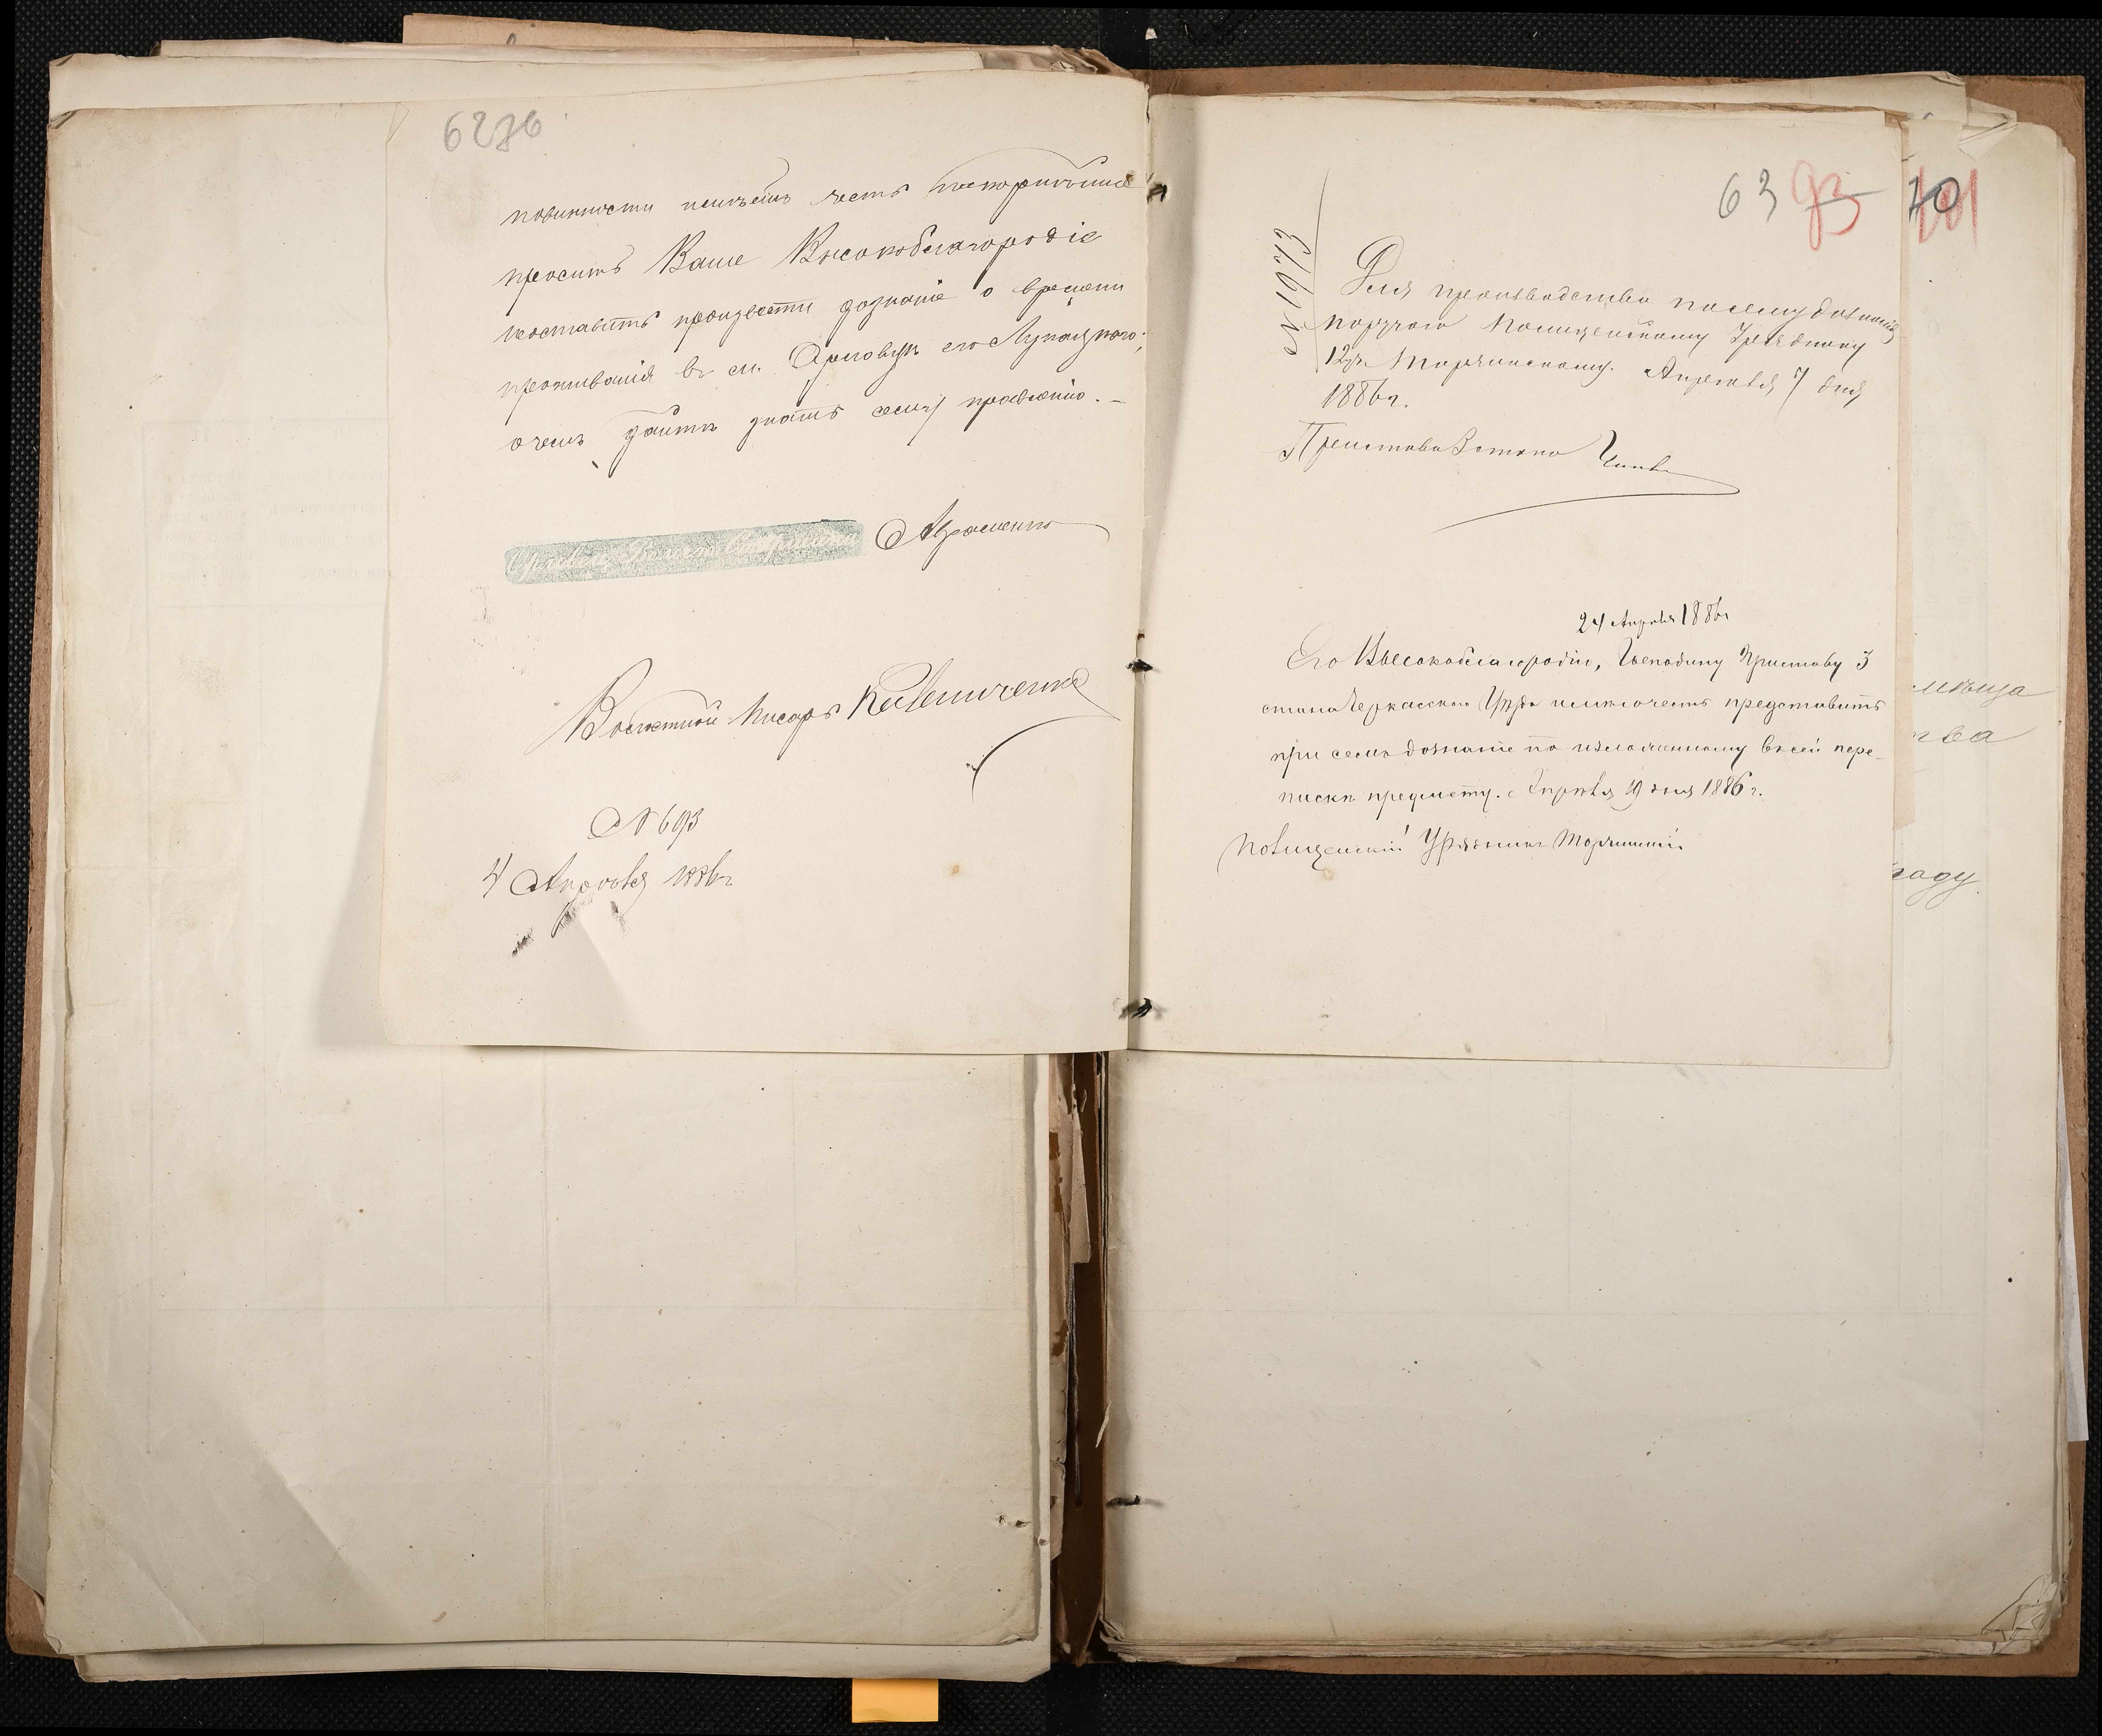 6276
повинности имѣетъ честь покорнѣйше
просить Ваше Высокоблагородіе
поставить произвести дознаніе о времени
проживанія въ м. Орловцѣ его Лупацкого;
о чемъ дайте знать сему правленію. –
Авраменко
Волостной Писарь
№ 693
4 Апрѣля 1886 г.
63 93 70 101
Для производства по сему дознанія
поручаю Полицейскому Уряднику
12 уч. Торчинскому. Апрѣля 7 дня
1886 г.
Приставъ 3 стана
24 Апрѣля 1886 г
Его Высокоблагородію, Господину Приставу 3
стана Черкасскаго Уѣзда имѣю честь представить
при семъ дознаніе по изложенному въ сей пере-
пискѣ предмету. Апрѣля 19 дня 1886 г.
Полицейскій Урядникъ Торчинскій
тва